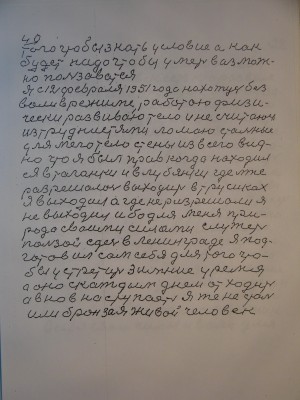 49
того чтобы знать условие а как
будет надо чтобы умер возмож-
но ползоватся
Я с 12 февраля 1951 года нахотжус без
воли в режиме работаю физи-
чески развиваю тело и не считаюс
из трудностями ломаю сталные
для меготело стены из всего вид-
но что я был прав когда находил
ся в таганки и в лубянки где те
разрешолои выходил в трусиках
я выходил а где неразрешоли я
не выходил ибо для меня при-
рода своими силами служит
ползой сдес в Ленинграде я под-
готовил сам себя для того что-
бы устретит зимние уремя
а оно скаждым днем отходит
а вновь наступает я же не дом
или бронзая живой человек